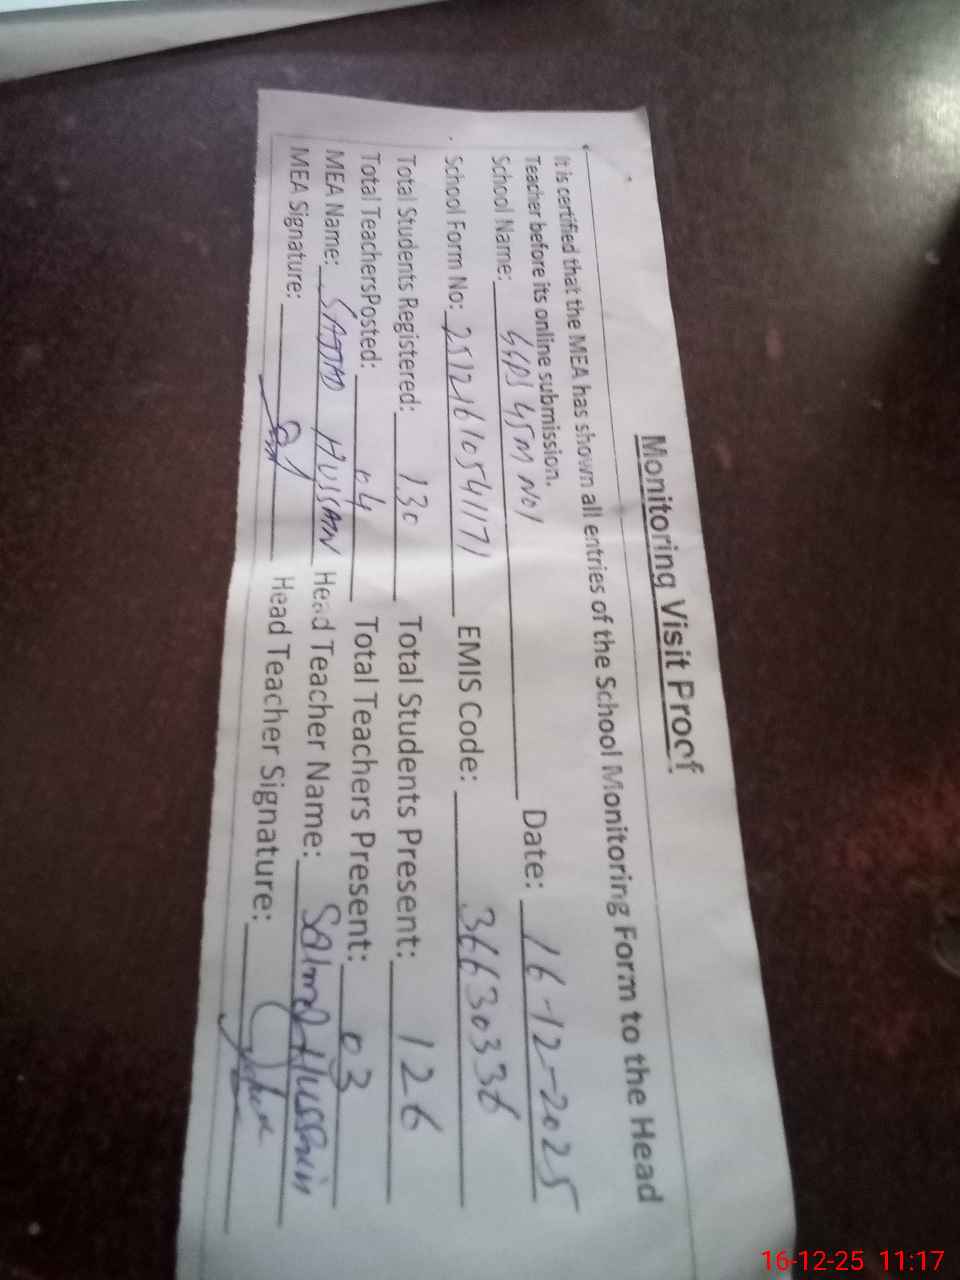 Monitoring Visit Proof
It is certified that the MEA has shown all entries of the School Monitoring Form to the Head
Teacher before its online submission.
School Name: GGPS 45M NO1 Date: 16-12-2025
School Form No: 25121610541171 EMIS Code: 36630336
Total Students Registered: 130 Total Students Present: 126
Total TeachersPosted: 04 Total Teachers Present: 03
MEA Name: SAJJAD HUSSAIN Head Teacher Name: Salma Hussain
MEA Signature: Head Teacher Signature:
16-12-25 11:17